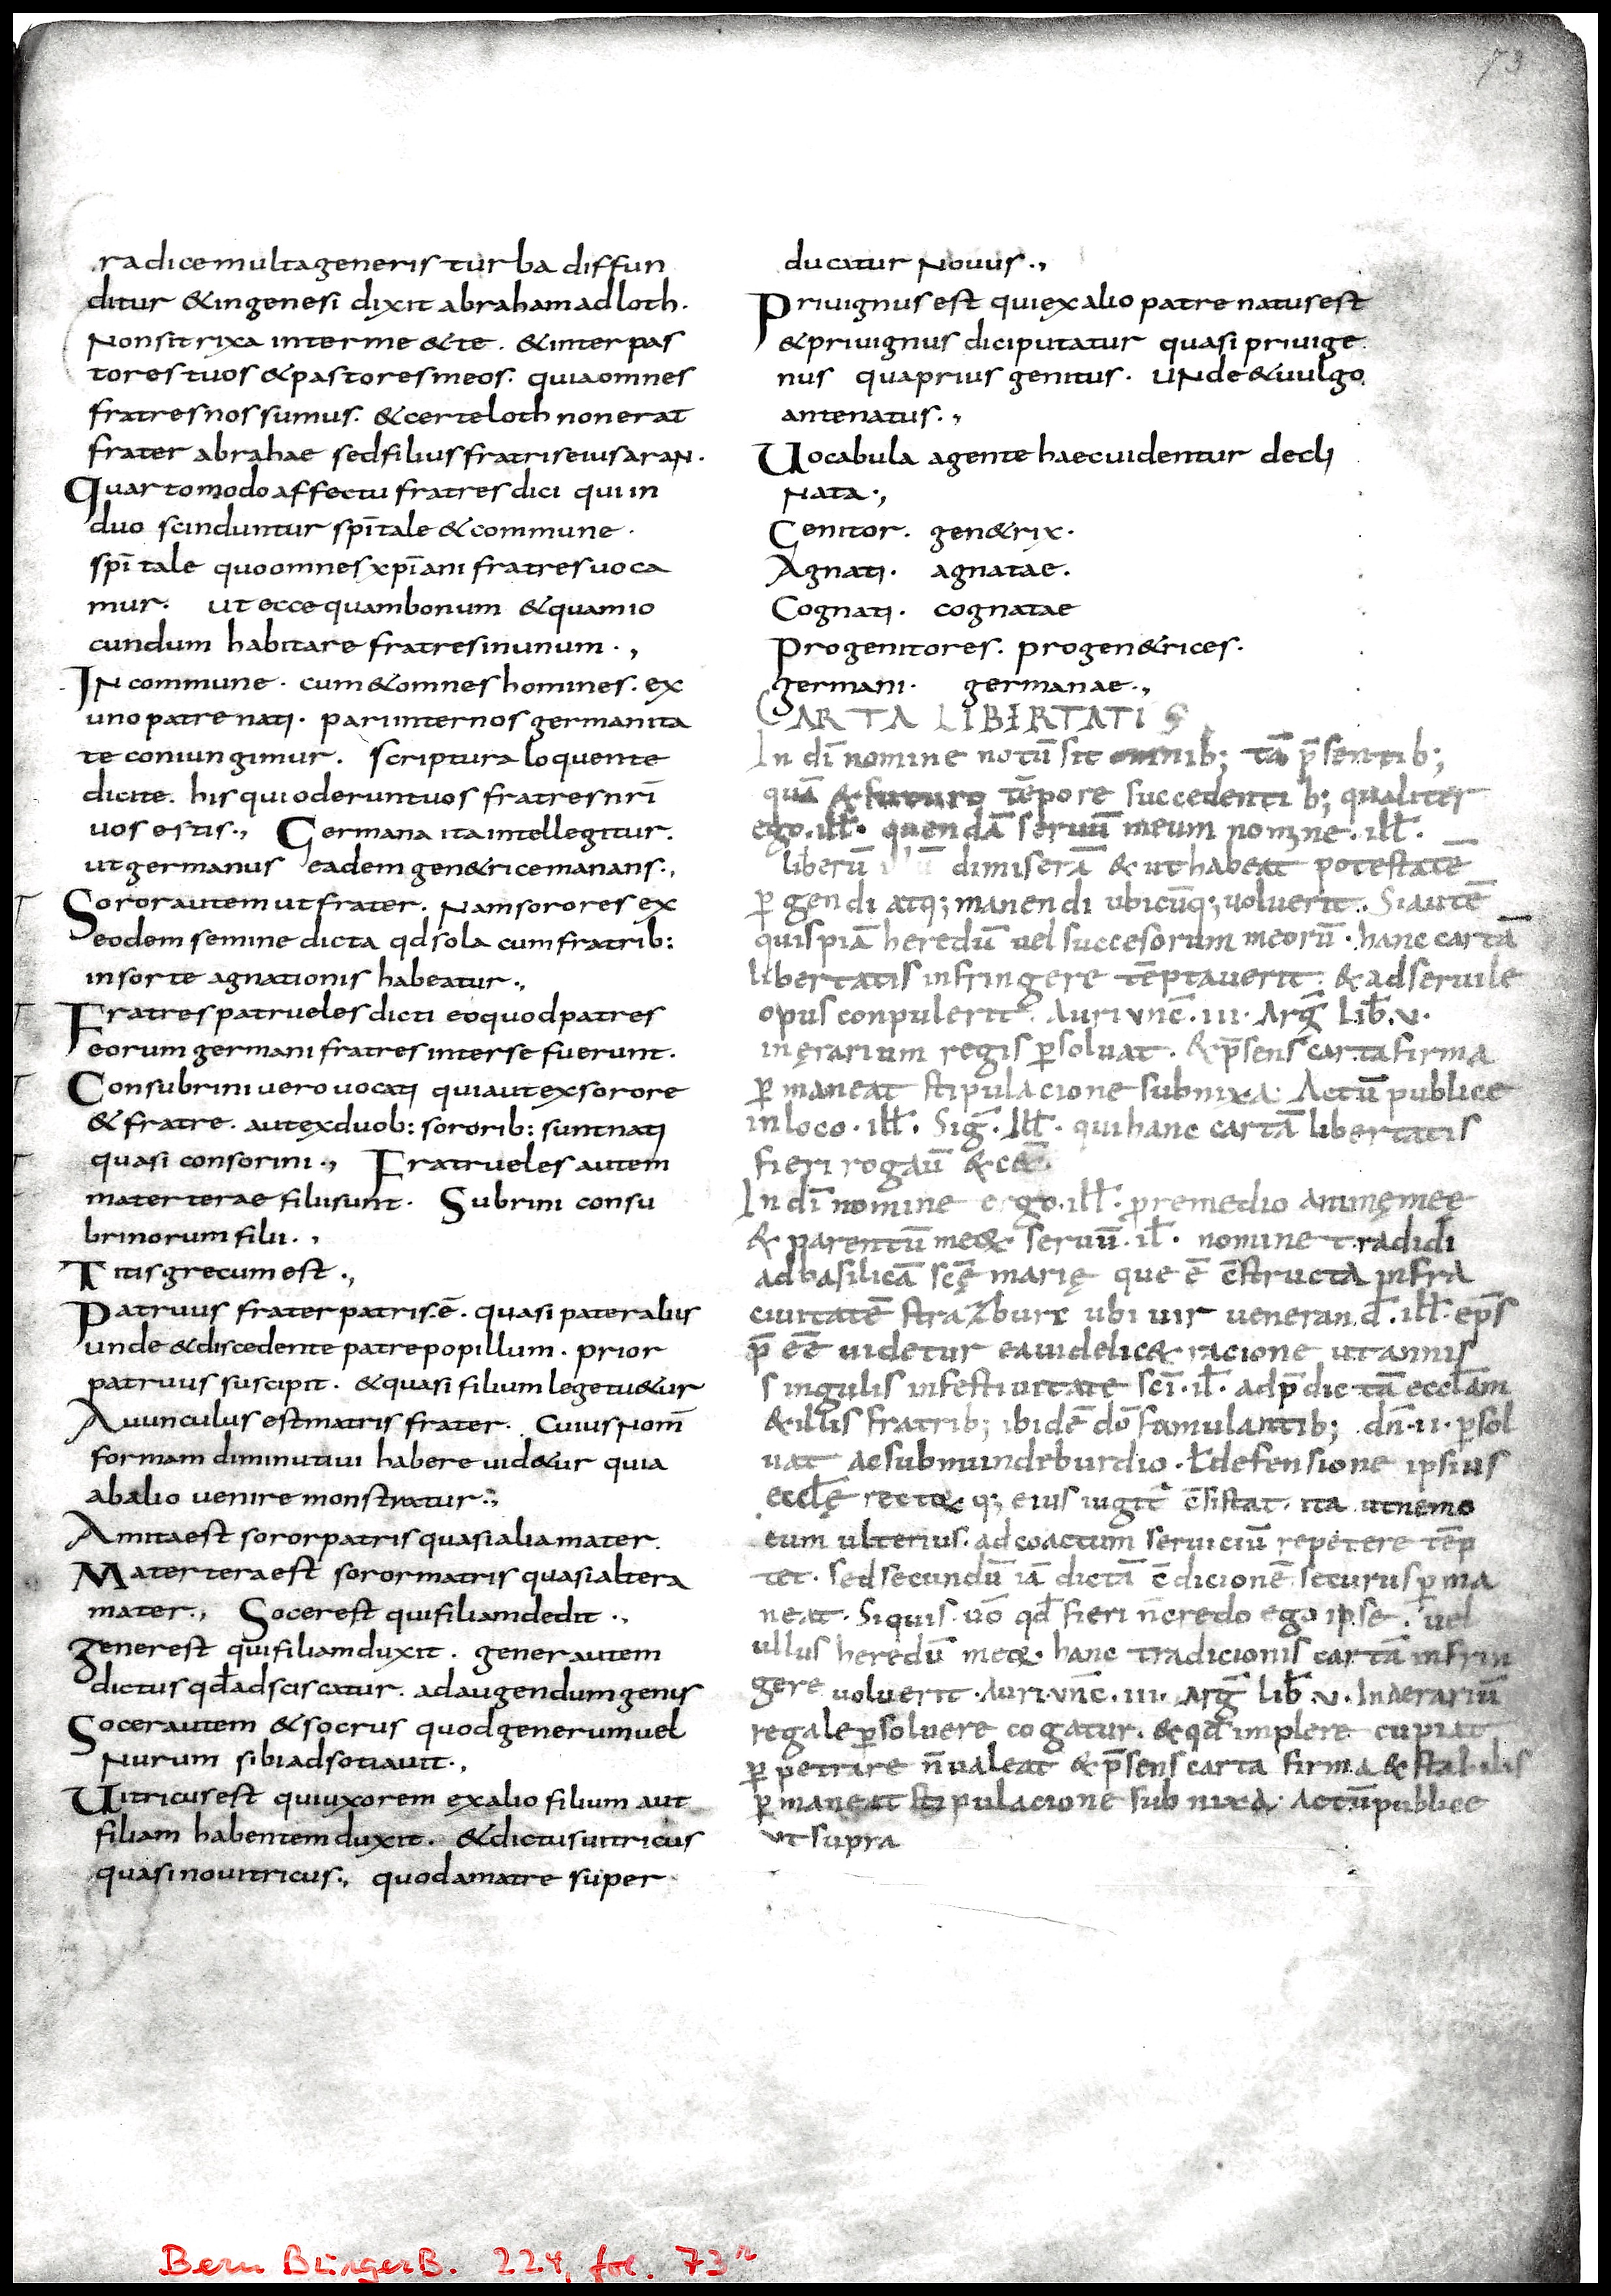 73
radice multa generis turba diffun
ditur & in genesi dixit abraham ad loth.
Non sit rixa inter me & te. & inter pas
tores tuos & pastores meos. quia omnes
fratres nos sumus. & certe loth non erat
frater abrahae sed filius fratris eius araN.
Quarto modo affectu fratres dici qui in
duo scinduntur spītale & commune.
spītale quo omnes xpīani fratres uoca
mur. ut ecce quam bonum & quam io
cundum habitare fratres in unum.,
IN commune. cum & omnes homines. ex
uno patre nati. pari inter nos germanita
te coniungimur. scriptura loquente
dicite. his qui oderunt uos fratres nr̄i
uos estis., Germana ita intellegitur.
ut germanus eadem gen&rice manans.,
Soror autem ut frater. Nam sorores ex
eodem semine dicta qd sola cum fratrib:
in sorte agnationis habeatur.,
Fratres patrueles dicti eo quod patres
eorum germani fratres inter se fuerunt.
Consubrini uero uocati qui aut ex sorore
& fratre. aut ex duob: sororib: sunt nati
quasi consorini., Fratrueles autem
materterae filii sunt. Subrini consu
brinorum filii.,
Titis grecum est.,
Patruus frater patris.ē. quasi pater alius
unde & discedente patre popillum. prior
patruus suscipit. & quasi filium lege tu&ur
Auunculus est matris frater. Cuius Nom̄
formam diminutiui habere uid&ur quia
ab alio uenire monstratur.,
Amita est soror patris quasi alia mater.
Matertera est soror matris quasi altera
mater., Socer est qui filiam dedit.,
Gener est qui filiam duxit. gener autem
dictus qd̄ adsciscatur. ad augendum genus
Socer autem & socrus quod generum uel
Nurum sibi adsotiauit.,
Uitricus est qui uxorem ex alio filium aut
filiam habentem duxit. & dictus uitricus
quasi nouitricus., quod a matre super
ducatur Nouus.,
Priuignus est qui ex alio patre natus est
& priuignus dici putatur quasi priuige
nus qua prius genitus. UNde & uulgo
antenatus.,
Uocabula a gente haec uidentur decli
Nata.,
Genitor. gen&rix.
Agnati. agnatae.
Cognati. cognatae
Progenitores. progen&rices.
germani. germanae.,
CARTA LIBERTATIS
In dī nomine notū sit omnib; tā p̄sentib;
quā & futuro tēpore succedentib; qualiter
ego. ill̄. quendā seruū meum nomine. ill̄.
liberū dimiserā & ut habeat potestatē
pergendi atq; manendi ubicūq; uoluerit. Si autē
quispiā heredū uel succesorum meorū. hanc cartā
libertatis infringere tēptauerit. & ad seruile
opus conpulerit. Auri unc̄. iii. Arḡ Lib̄. v.
in ęrarium regis ꝑsoluat. & p̄sens carta firma
ꝑmaneat stipulacione subnixa. Actū publice
in loco. ill̄. Siḡ. Ill̄. qui hanc cartā libertatis
fieri rogaū & c&.
In dī nomine ergo. ill̄. pro remedio animę mee
& parentū meo& seruū. il̄. nomine tradidi
ad basilicā scę̄ marię que ē c̄structa infra
ciuitatē straZburc ubi uir ueneran d̄. ill̄. ep̄s
p̄ eē uidetur ea uidelic& racione ut annis
singulis in festiuitate scī. il̄. ad p̄dictā eccl̄am
& illis fratrib; ibidē dō famulantib; dn̄. ii. ꝑsol
uat ac sub mundeburdio. ł defensione ipsius
eccl̄ę recto& q; eius iugit̄ c̄sistat. ita ut nemo
eum ulterius. ad coactum seruiciū repetere tēp
tet. sed secundū iā dictā c̄dicionē securus ꝑma
neat. Si quis uō qd̄ fieri n̄ credo ego ipse. uel
ullus heredū meo&. hanc tradicionis cartā infrin
gere uoluerit. Auri. unc̄. iii. Arḡ lib̄. v. In aerariū
regale ꝑsoluere cogatur. & qd̄ implere cupiat
ꝑpetrare n̄ ualeat & p̄sens carta firma & stabilis
ꝑmaneat stipulacione subnixa. Actū publice
ut supra
Bern BürgerB. 224, fol. 73r